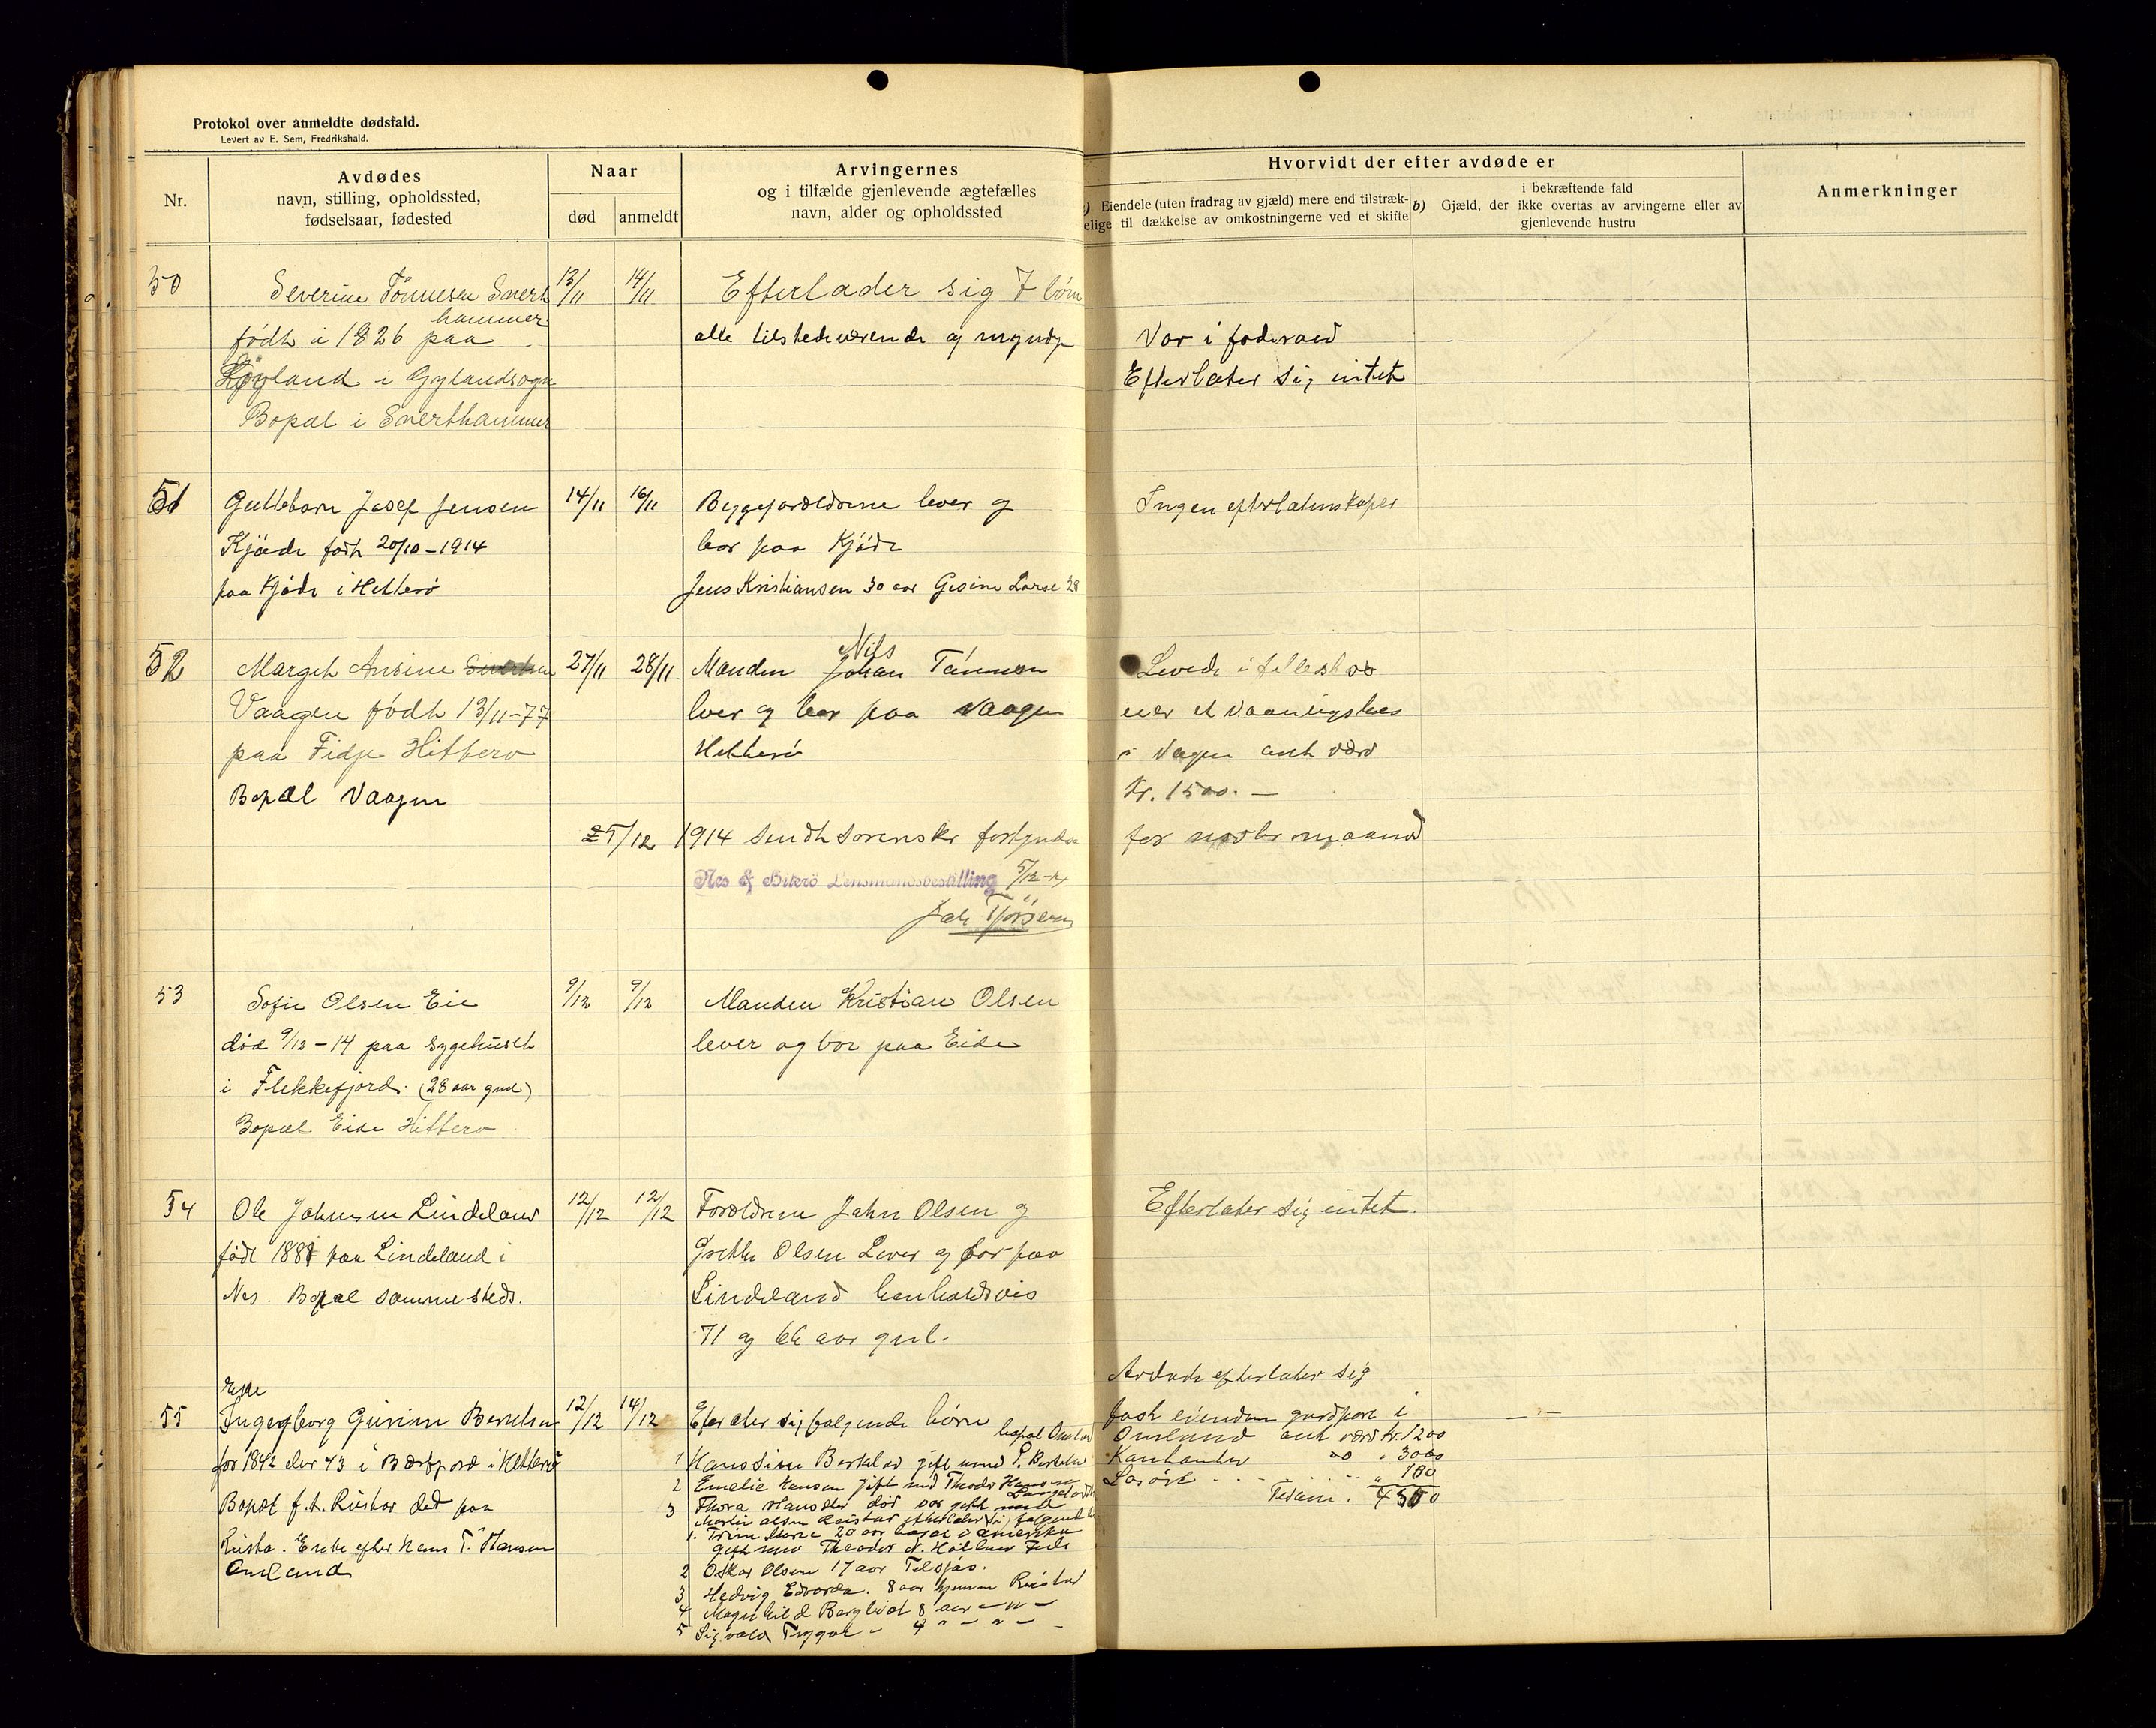 Protokol over anmeldte dødsfald.
Levert av E. Sem, Fredrikshald.
Nr.
Avdødes
navn, stilling, opholdssted,
fødselsaar, fødested
Naar
død
anmeldt
Arvingernes
og i tilfælde gjenlevende ægtefælles
navn, alder og opholdssted
Hvorvidt der efter avdøde er
Eiendele (uten fradrag av gjæld) mere end tilstræk-
elige til dækkelse av omkostningerne ved et skifte
b)
i bekræftende fald
Gjæld, der ikke overtas av arvingerne eller av
gjenlevende hustru
Anmerkninger
50
Severine Tønnesen
hammer
født i 1826 paa
i Gylandsogn
Bopæl i
13/11
14/11
Efterlader sig 7 børn
alle tilstedeværende og myndge
Var i foderaad
Efterlater sig intet
51
Guttebarn Josef Jensen
Kjøde født 20/10-1914
paa Kjøde i Hitterø
14/11
16/11
lever og
bor paa Kjøde
Jens Kristiansen 30 aar Gesine Larse 28
Ingen efterlatenskaper
52
Margit Ansine
Vaagen født 13/11-77
paa Fidje Hitterø
Bopæl Vaagen
27/11
28/11
Nils
Manden Johan Tønnesen
lever og bor paa Vaagen
Hitterø
Levede i fellesbo
eier et vaaningshus
i Vagen ant værd
Kr. 1500.-
5/12 1914 sendt sorenskr fortegnelse
for novbr maaned
Nes & Hiterø Lensmandsbestilling 5/12-14
53
Sofie Olsen Eie
død 9/12-14 paa sygehuset
i Flekkefjord. (28 aar gml)
Bopæl Eide Hitterø
9/12
9/12
Manden Kristian Olsen
lever og bor paa Eide
54
Ole Johnsen Lindeland
født 1881 paa Lindeland i
Nes. Bopæl sammesteds.
12/12
12/12
Forældrene John Olsen og
Grethe Olsen Lever og bor paa
Lindeland henholdsvis
71 og 66 aar gml.
Efterlater sig intet.
55
Enke
Ingegborg Gurine Bertelsen
før 1842 eller 43 i i Hitterø
Bopæl f.t. Rustad død paa
Enke efter Hans T. Hansen
Omland
12/12
14/12
Efterlater sig følgende børn bopæl Omland
1 Hansine gift med P. Bertelsen
2 Emelie Hansen gift med Theodor Hansen
3 Thora Hansdtr død var gift med
Martin Olsen Rustad efterlater sig følgende
1. 20 aar bopæl i Amerika
gift med Theodor
2 Oskar Olsen 17 aar Tilsjøs.
3 Hedvig Edvarda. 8 aar hjemme Rustad
4 Magnhild Bergliot 8 aar - " -
5 Sigvald Trygve - 4 " - " -
Avdøde efterlater sig
fast eiendom gardpart i
Omland ant værd kr. 1200
Kontanter do " 3000
Løsøre " 100
Tilsam.